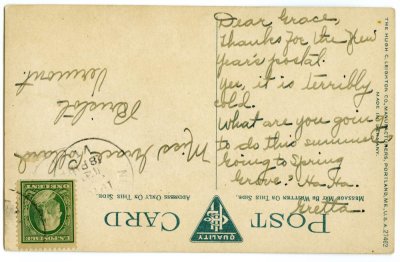 Dear Grace,
Thanks for the New
Year's postal.
Yes, it is terribly
cold.
What are you going
to do this summer
Going to Spring
Grove. Ha Ha.
Gretta.
Miss Grace
Bristol
Vermont.
POST CARD
MESSAGE MAY BE WRITTEN ON THIS SIDE.
ADDRESS ONLY ON THIS SIDE.
QUALITY
THE HUGH C. LEIGHTON CO., MANUFACTURERS, PORTLAND, ME., U.S.A.
MADE IN GERMANY.
U.S. POSTAGE
ONE CENT